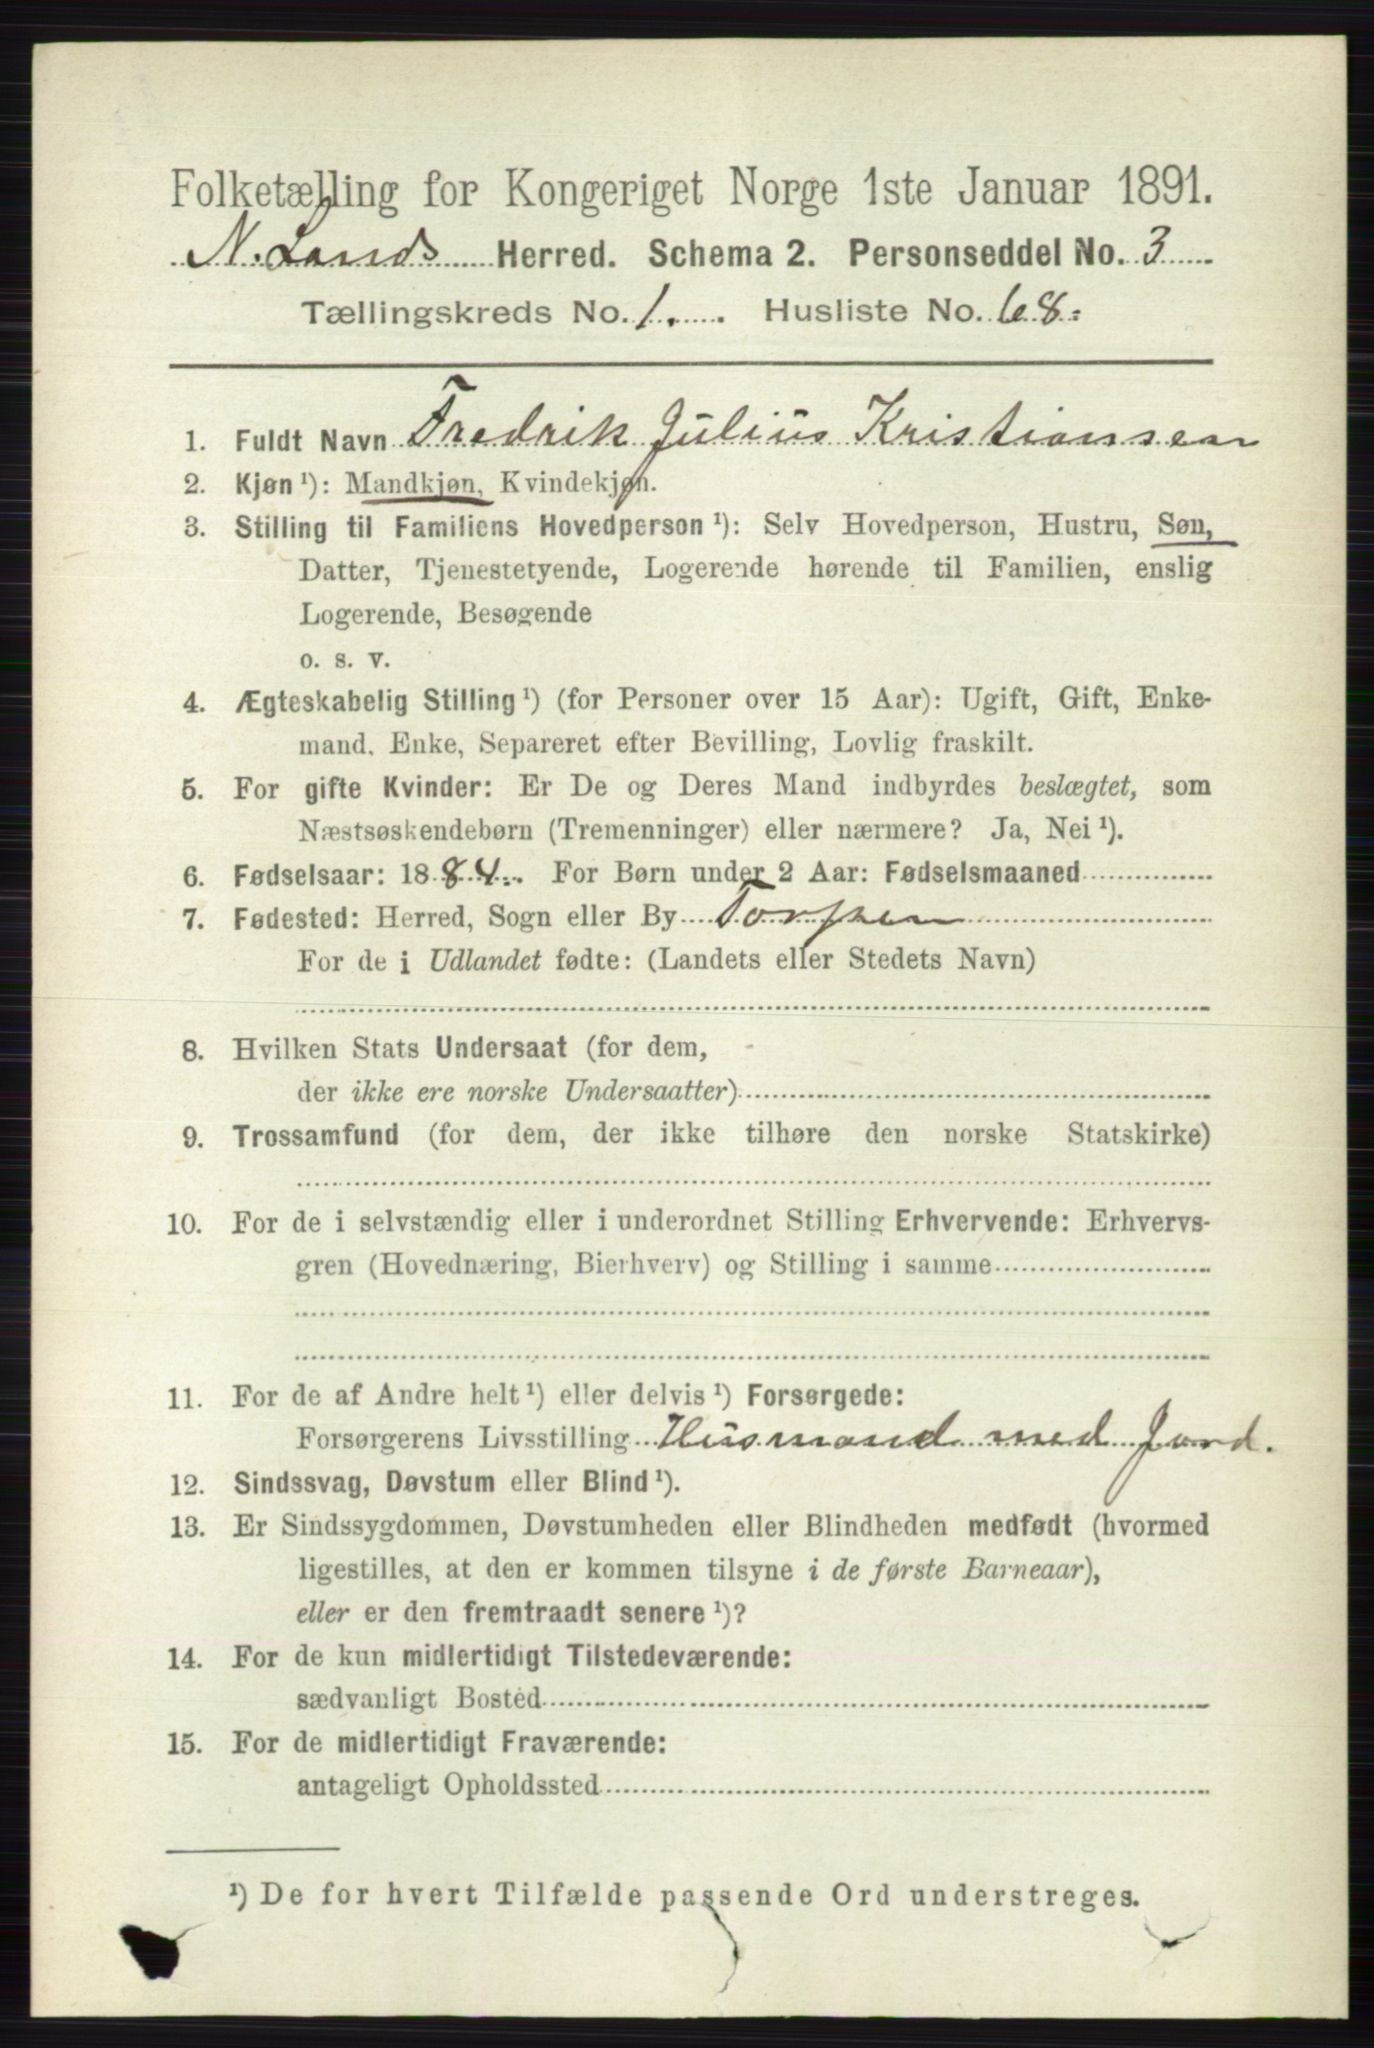 Folketælling for Kongeriget Norge 1ste Januar 1891.
N. Lands Herred. Schema 2. Personseddel No. 3
Tællingskreds No. 1. Husliste No. 68.
1. Fuldt Navn Fredrik Julius Kristiansen
2. Kjøn ¹): Mandkjøn, Kvindekjøn.
3. Stilling til Familiens Hovedperson ¹): Selv Hovedperson, Hustru, Søn,
Datter, Tjenestetyende, Logerende hørende til Familien, enslig
Logerende, Besøgende
o. s. v.
4. Ægteskabelig Stilling ¹) (for Personer over 15 Aar): Ugift, Gift, Enke-
mand, Enke, Separeret efter Bevilling, Lovlig fraskilt.
5. For gifte Kvinder: Er De og Deres Mand indbyrdes beslægtet, som
Næstsøskendebørn (Tremenninger) eller nærmere? Ja, Nei ¹).
6. Fødselsaar: 1884. For Børn under 2 Aar: Fødselsmaaned
7. Fødested: Herred, Sogn eller By Torpen
For de i Udlandet fødte: (Landets eller Stedets Navn)
8. Hvilken Stats Undersaat (for dem,
der ikke ere norske Undersaatter)
9. Trossamfund (for dem, der ikke tilhøre den norske Statskirke)
10. For de i selvstændig eller i underordnet Stilling Erhvervende: Erhvervs-
gren (Hovednæring, Bierhverv) og Stilling i samme
11. For de af Andre helt ¹) eller delvis ¹) Forsørgede:
Forsørgerens Livsstilling Husmand med Jord.
12. Sindssvag, Døvstum eller Blind ¹).
13. Er Sindssygdommen, Døvstumheden eller Blindheden medfødt (hvormed
ligestilles, at den er kommen tilsyne i de første Barneaar),
eller er den fremtraadt senere ¹)?
14. For de kun midlertidigt Tilstedeværende:
sædvanligt Bosted
15. For de midlertidigt Fraværende:
antageligt Opholdssted
¹) De for hvert Tilfælde passende Ord understreges.